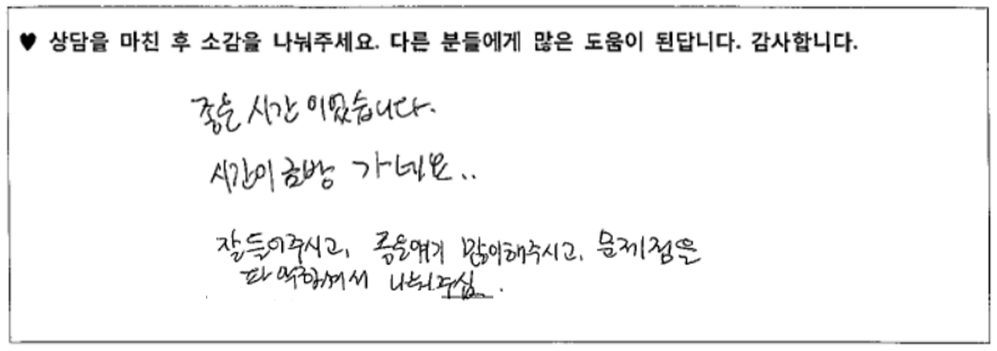 ♥ 상담을 마친 후 소감을 나눠주세요. 다른 분들에게 많은 도움이 된답니다. 감사합니다.
좋은 시간 이었습니다.
시간이 금방 가네요..
잘들어주시고, 좋은얘기 많이해주시고, 문제점을
파악하셔서 나눠주심.